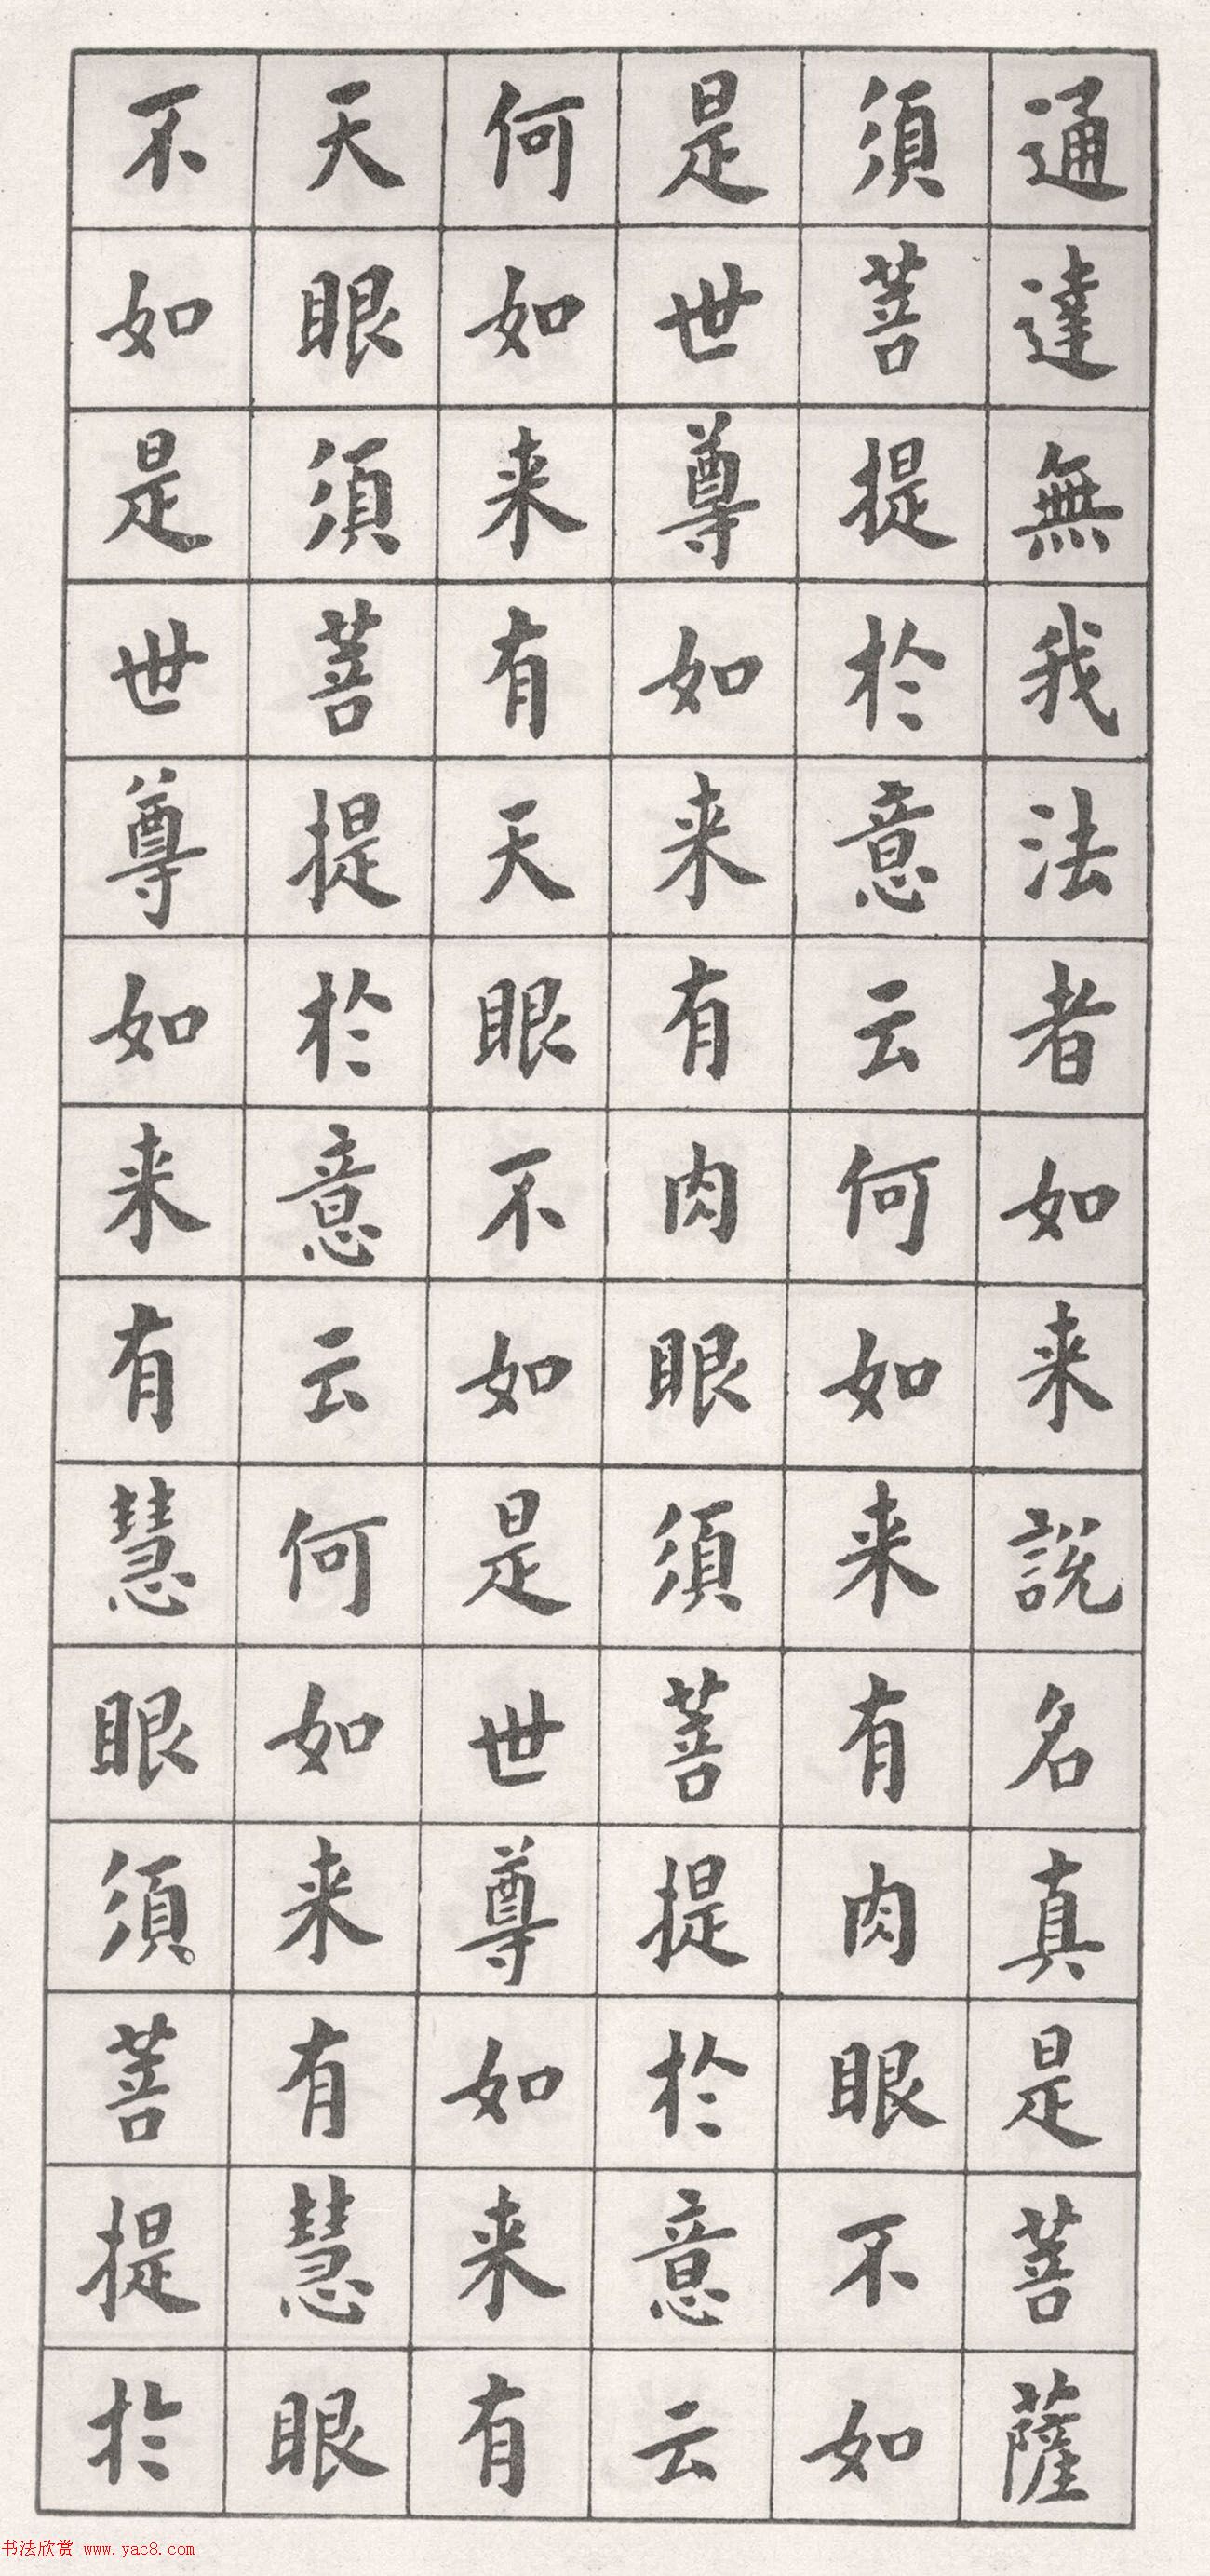 通達無我法者如来說名真是菩薩
須菩提於意云何如来有肉眼不如
是世尊如来有肉眼須菩提於意云
何如来有天眼不如是世尊如来有
天眼須菩提於意云何如来有慧眼
不如是世尊如来有慧眼須菩提於
书法欣赏 www.yac8.com